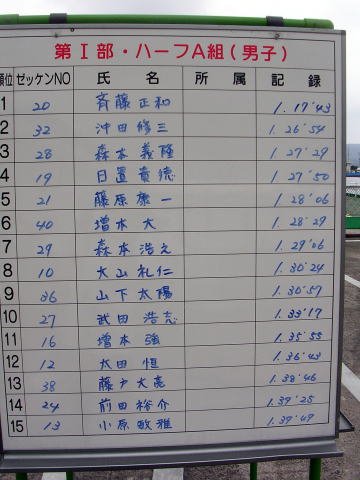 第Ⅰ部・ハーフA組(男子)
順位 ゼッケンNO 氏名 所属 記録
1 20 斉藤正和 1.17'43
2 32 沖田修三 1.26'54
3 28 森本義隆 1.27'29
4 19 日置貴徳 1.27'50
5 21 藤原康一 1.28'06
6 40 増本大 1.28'29
7 29 森本浩之 1.29'06
8 10 大山礼仁 1.30'24
9 36 山下太陽 1.30'57
10 27 武田浩志 1.33'17
11 16 増本強 1.35'55
12 12 太田恒 1.36'43
13 38 藤戸大亮 1.38'46
14 24 前田裕介 1.39'25
15 13 小原敏雅 1.39'49